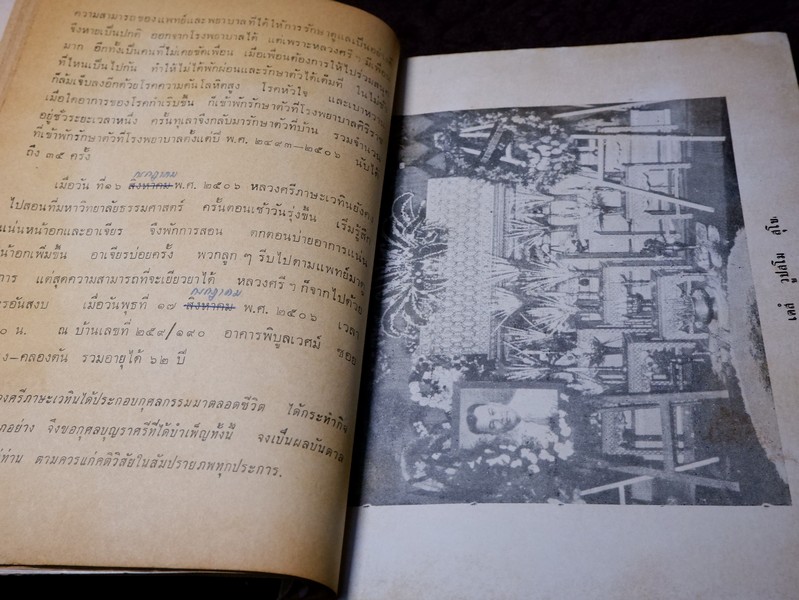 ความสามารถของแพทย์และพยาบาลที่ได้ให้การรักษาดูแลเป็นอย่างดี
จึงหายเป็นปกติ ออกจากโรงพยาบาลได้ แต่เพราะหลวงศรี ฯ มีเพื่อน
มาก อีกทั้งเป็นคนที่ไม่เคยขัดเพื่อน เมื่อเพื่อนต้องการให้ไปร่วม
ที่ไหนเป็นไปกัน ทำให้ไม่ได้พักผ่อนและรักษาตัวได้เต็มที่
ก็ล้มเจ็บลงอีกด้วยโรคความดันโลหิตสูง โรคหัวใจ และเบาหวาน
เมื่อใดอาการของโรคกำเริบขึ้น ก็เข้าพักรักษาตัวที่โรงพยาบาลศิริราช
อยู่ชั่วระยะเวลาหนึ่ง ครั้นทุเลาจึงกลับมารักษาตัวที่บ้าน รวมจำนวน
ที่เข้าพักรักษาตัวที่โรงพยาบาลตั้งแต่ปี พ.ศ. ๒๔๙๓–๒๕๐๖ นับได้
ถึง ๓๕ ครั้ง
พฤศจิกายน
เมื่อวันที่ ๑๖ สิงหาคม พ.ศ. ๒๕๐๖ หลวงศรีภาษะเวทินยังคง
ไปสอนที่มหาวิทยาลัยธรรมศาสตร์ ครั้นตอนเช้าวันรุ่งขึ้น เริ่มรู้สึก
แน่นหน้าอกและอาเจียร จึงพักการสอน ตกตอนบ่ายอาการแน่น
หน้าอกเพิ่มขึ้น อาเจียรบ่อยครั้ง พวกลูก ๆ รีบไปตามแพทย์มา
การ แต่สุดความสามารถที่จะเยียวยาได้ หลวงศรี ฯ ก็จากไปด้วย
พฤศจิกายน
การอันสงบ เมื่อวันพุธที่ ๑๗ สิงหาคม พ.ศ. ๒๕๐๖ เวลา
๐ น. ณ บ้านเลขที่ ๒๕๙/๑๙๐ อาคารพิบูลเวศม์ ซอย
ง–คลองตัน รวมอายุได้ ๖๒ ปี
วงศรีภาษะเวทินได้ประกอบกุศลกรรมมาตลอดชีวิต ได้กระทำกิจ
กอย่าง จึงขอกุศลบุญราศรีที่ได้บำเพ็ญทั้งนี้ จงเป็นผลบันดาล
ท่าน ตามควรแก่คติวิสัยในสัมปรายภพทุกประการ.
เตสํ วูปสโม สุโข